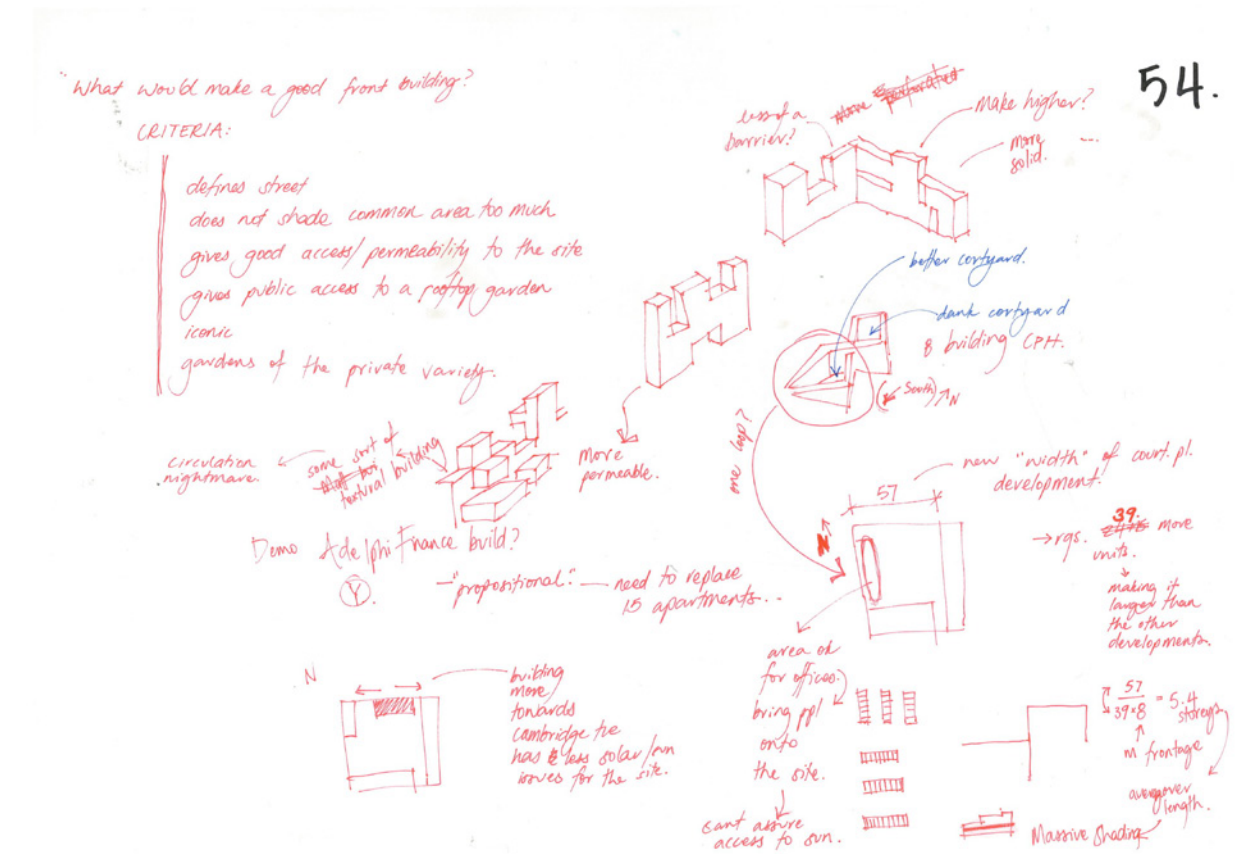 "What would make a good front building?
CRITERIA:
defines street
does not shade common area too much
gives good access/permeability to the site
gives public access to a rooftop garden
iconic
gardens of the private variety.
54.
less of a
barrier?
more perforated
Make higher?
more
solid.
better cortyard.
dank cortyard
8 building CPH.
(South) N
one loop?
more
permeable.
some sort of
textural building
circulation
nightmare.
Demo Adelphi Finance build?
Y.
"propositional." — need to replace
15 apartments..
new "width" of court. pl.
development.
57
N
→ rqs. 39. more
units.
making it
larger than
the other
developments.
area ok
for offices.
bring ppl
onto
the site.
cant assure
access to sun.
N
building
more
towards
Cambridge tce
has less solar/sun
issues for the site.
57
39×8 = 5.4
storeys
m frontage
average over
length.
Massive Shading